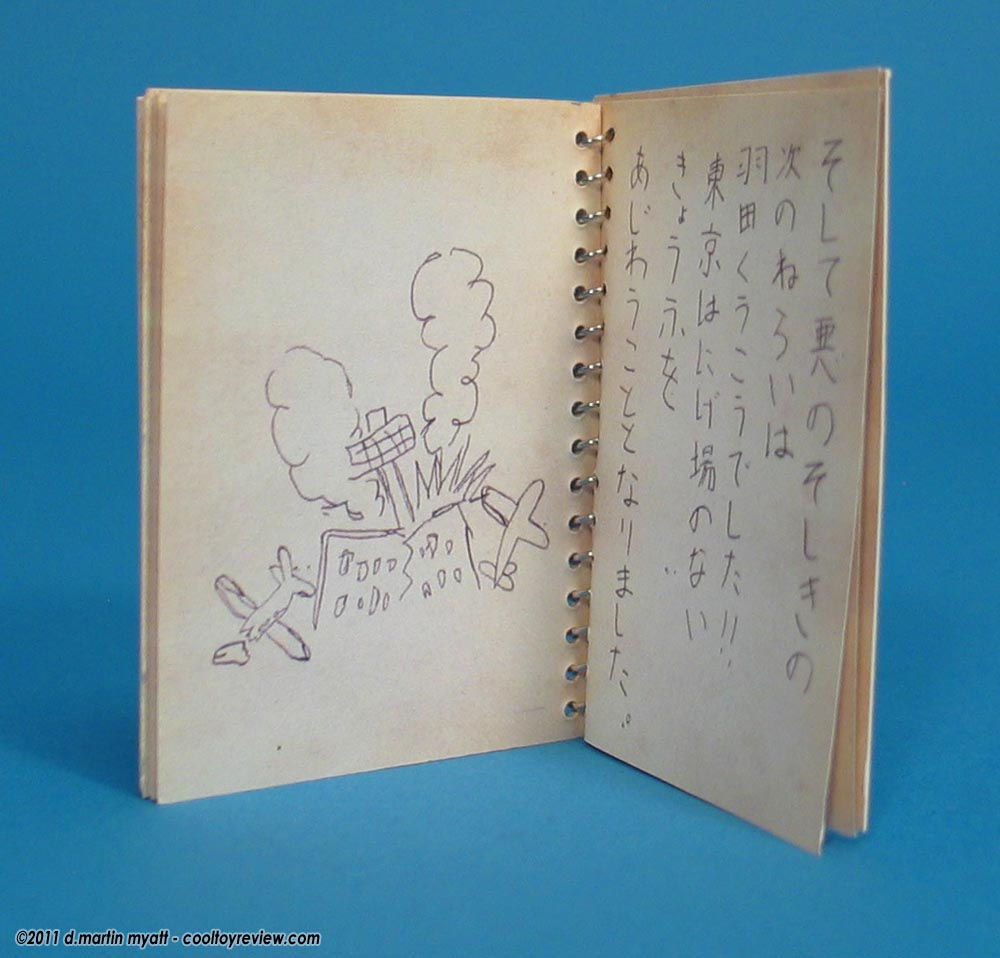 そして悪のそしきの
次のねらいは
羽田くうこうでした!!
東京はにげ場のない
きょうふを
あじわうこととなりました。
©2011 d.martin myatt - cooltoyreview.com